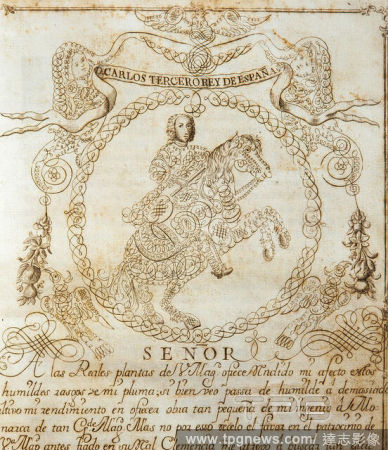 D. CARLOS TERCERO REY DE ESPAÑA
SEÑOR
A las Reales plantas de V. Magd. ofrece Madido mi afecto estos
humildes rasgos de mi pluma; si bien veo passa de humilde a demasiado
mi rendimiento en ofrecer obra tan pequeña de mi ingenio a Mo
narca de tan Mas no por esso recelo el favor en el patrocinio de
antes fiado en su Real Clemencia
www.tpgnews.com 達志影像